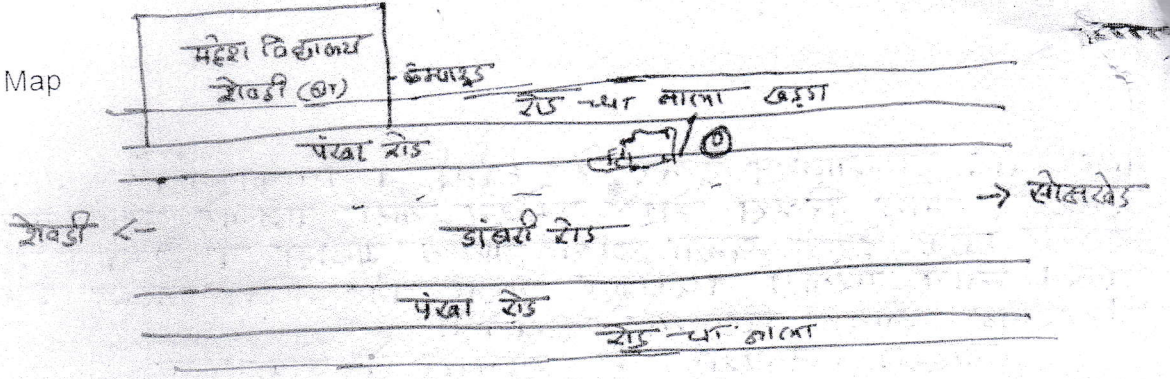 Map
महेश विद्यालय
शेवडी (बा)
कम्पाउंड
रोड चा नाला खड्डा
पंखा रोड
शेवडी ←
डांबरी रोड
→ सोनखेड
पंखा रोड
रोड चा नाला